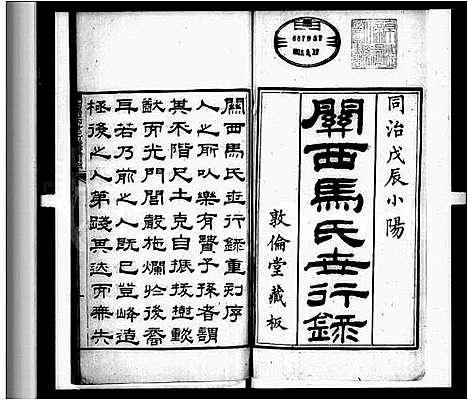 同治戊辰小陽
關西馬氏世行錄
敦倫堂藏板
關西馬氏世行錄重刻序
人之所以樂有賢子孫者謂
其不階尺土克自振拔樹勲
猷而光門閭嚴施爛於後裔
耳若乃前之人既已登峰造
極後之人第踐其迹而無失